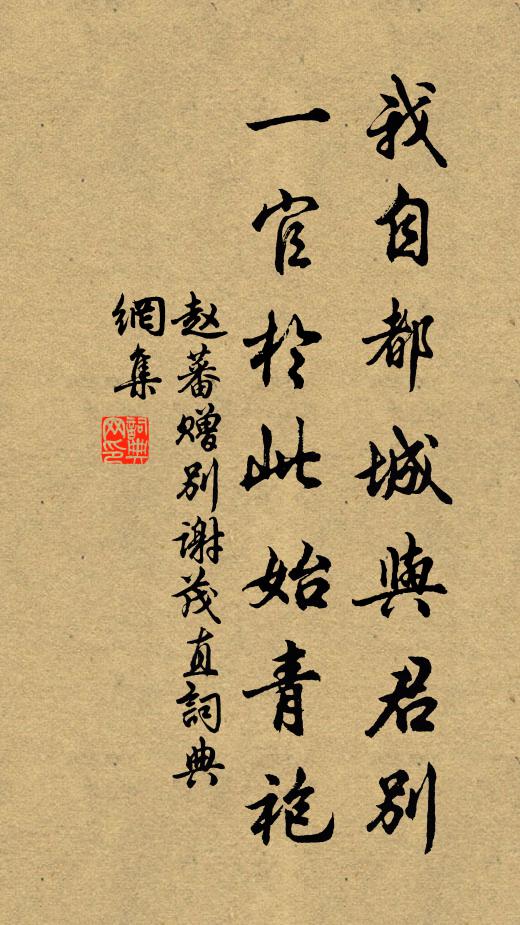 我自都城與君別
一官於此始青袍
赵蕃赠别谢茂直詞典
網集
詞典
网印